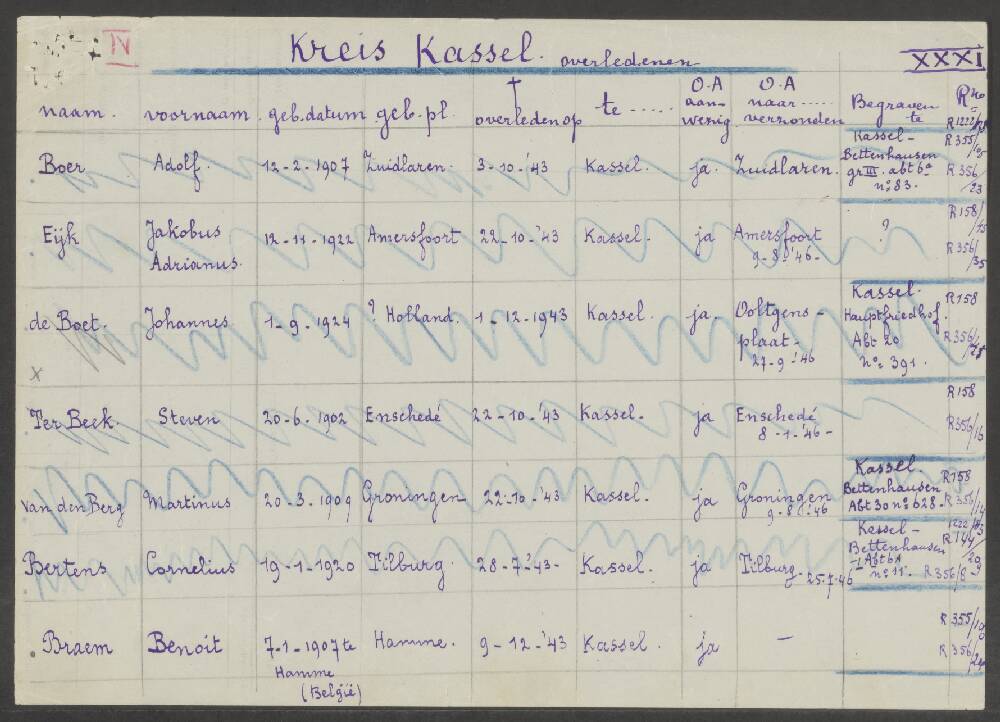 IV
Kreis Kassel. overledenen
XXXI
naam. voornaam. geb. datum geb. pl. † overleden op te ..... O.A aanwezig O.A naar ..... verzonden Begraven te R no
R 1222/
Boer Adolf. 12-2-1907 Zuidlaren. 3-10-'43 Kassel. ja. Zuidlaren. Kassel-
Bettenhausen
gr III. abt 6a
no: 83.
R 355/
R 356/23
Eijk Jakobus
Adrianus.
12-11-1922 Amersfoort 22-10-'43 Kassel. ja Amersfoort
9-8-'46-
?
R 158/15
R 356/35
de Boet. Johannes 1-9-1924 ? Holland. 1-12-1943 Kassel. ja. Ooltgens-
plaat-
27-9-'46
Kassel.
Hauptfriedhof.
Abt 20
no: 391.
R 158
R 356/28
X
Ter Beek. Steven 20-6-1902 Enschedé 22-10-'43 Kassel. ja Enschedé
8-1-'46-
R 158
R 356/16
van den Berg Martinus 20-3-1909 Groningen 22-10-'43 Kassel. ja Groningen
9-8-'46
Kassel.
Bettenhausen
Abt 30 no: 628.
R 158
R 356/14
Bertens Cornelius 19-1-1920 Tilburg. 28-7-'43- Kassel. ja Tilburg. 25-7-46
Kassel-
Bettenhausen
no: 11.
R 356/8
Braem Benoit 7-1-1907 te
Hamme
(België)
Hamme. 9-12-'43 Kassel. ja -
R 355/
R 356/